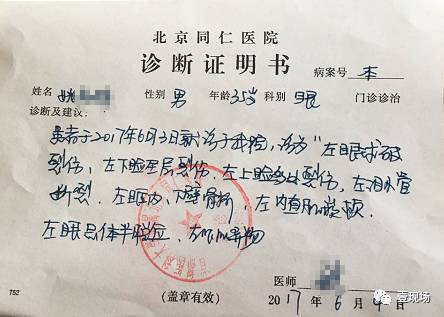 北京同仁医院
诊断证明书
病案号 本
姓名 姚 性别 男 年龄 35岁 科别 眼 门诊诊治
诊断及建议:
患者于2017年6月3日就诊于我院,诊为“左眼球破
裂伤,左下睑全层裂伤,左上睑皮裂伤,左泪小管
断裂,左眶内、下壁骨折,左内直肌
左眼晶体半脱位,左 异物
医师
(盖章有效) 2017年6月 日
T52
壹现场